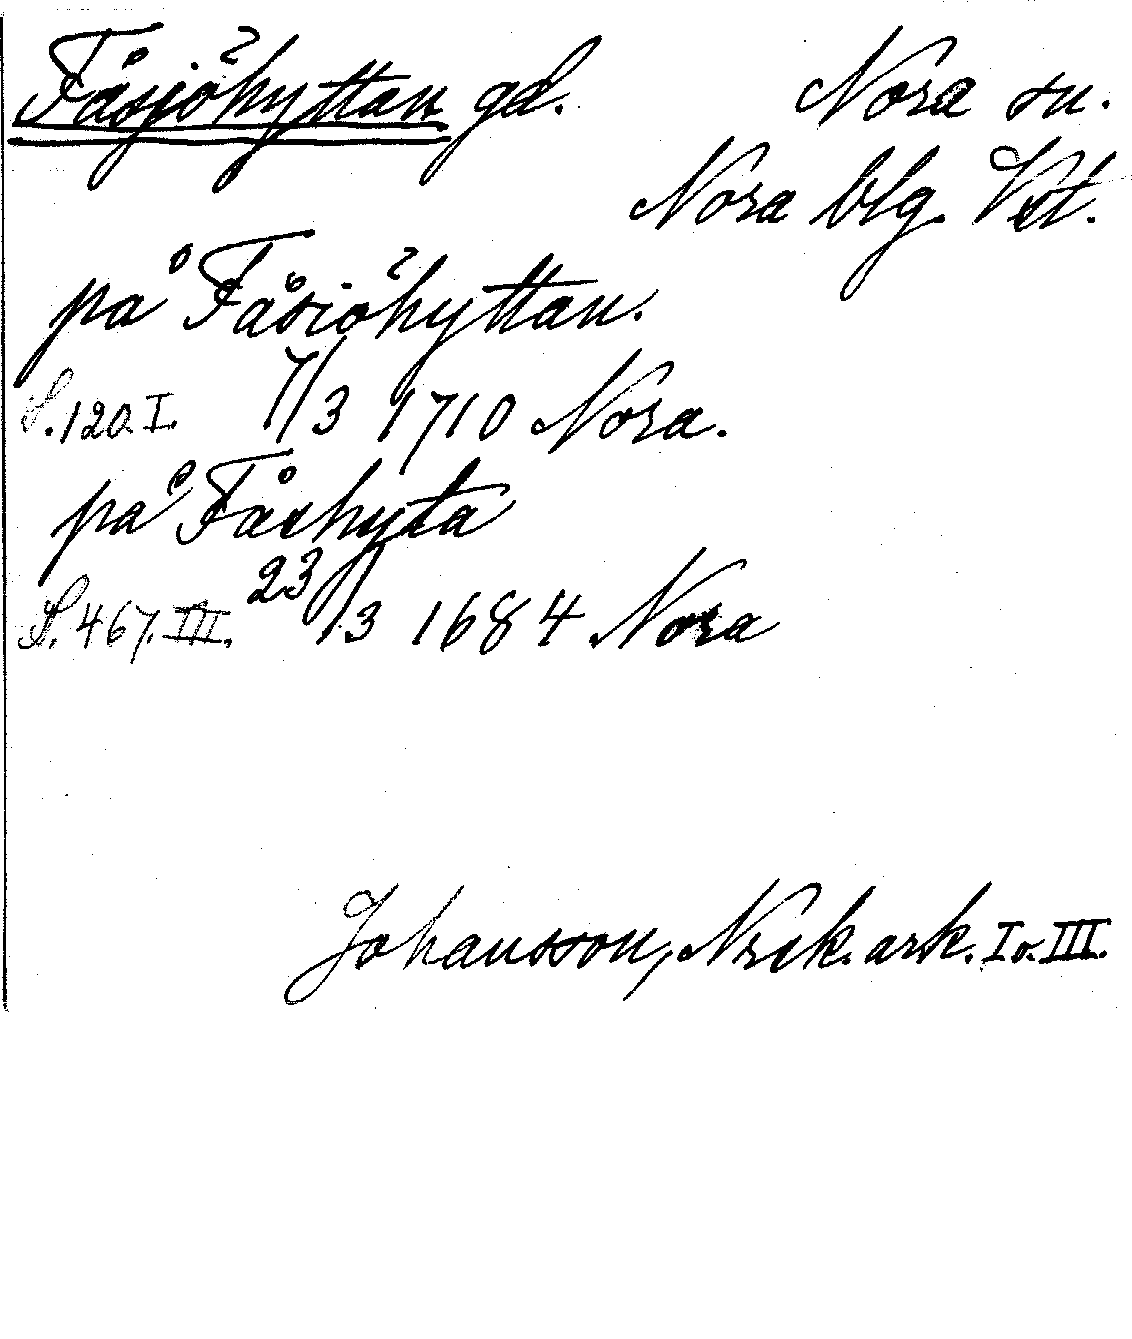 Fåsjöhyttan gd. Nora sn.
Nora blg. Vst.
på Fåsiöhyttan.
S. 120. I. 7/3 1710 Nora.
på Fåshyta
S. 467. III. 23/3 1684 Nora
Johansson, Nrik. ark. I o. III.